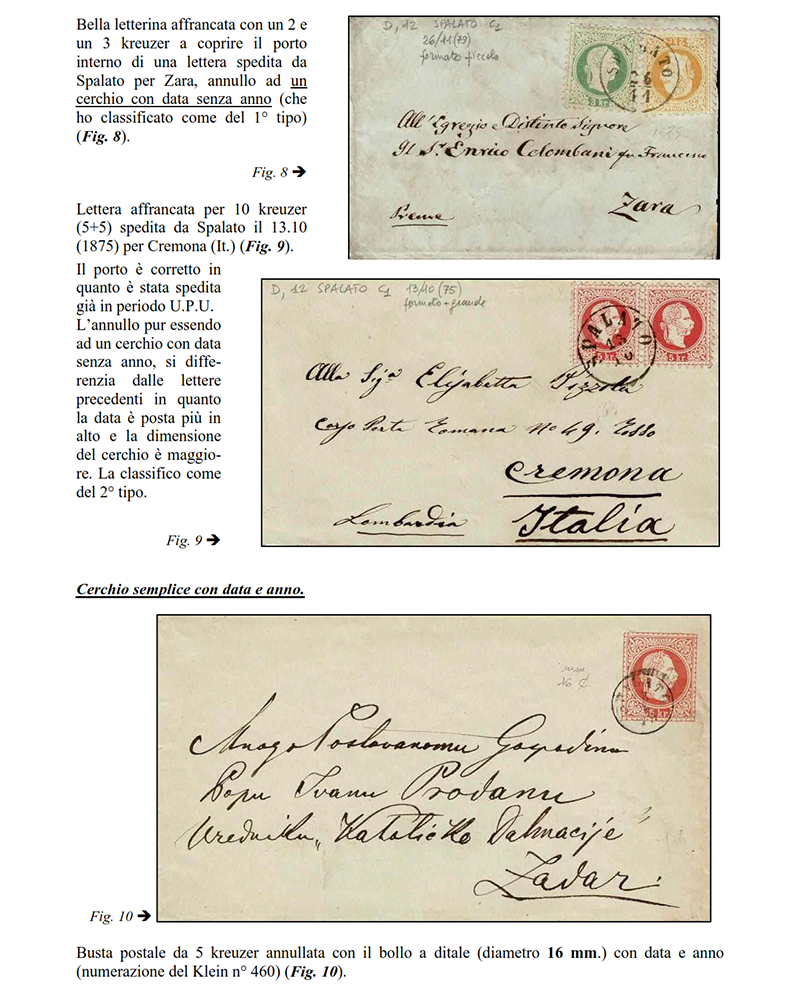 Bella letterina affrancata con un 2 e
un 3 kreuzer a coprire il porto
interno di una lettera spedita da
Spalato per Zara, annullo ad un
cerchio con data senza anno (che
ho classificato come del 1° tipo)
(Fig. 8).
Fig. 8 ➔
D, 12 SPALATO C1
26/11 (79)
formato piccolo
SPALATO
26
11
3 Kr.
All' Egregio e Distinto Signore
Sr. Enrico Colombani fu Francesco
Zara
Preme
Lettera affrancata per 10 kreuzer
(5+5) spedita da Spalato il 13.10
(1875) per Cremona (It.) (Fig. 9).
Il porto è corretto in
quanto è stata spedita
già in periodo U.P.U.
L’annullo pur essendo
ad un cerchio con data
senza anno, si diffe-
renzia dalle lettere
precedenti in quanto
la data è posta più in
alto e la dimensione
del cerchio è maggio-
re. La classifico come
del 2° tipo.
Fig. 9 ➔
D, 12 SPALATO C1 13/10 (75)
formato + grande
SPALATO
13
10
5 Kr. 5 Kr.
Alla Sigª Elisabetta Pizzola
Corso Porta Romana No 49. Rosso
Cremona
Lombardia Italia
Cerchio semplice con data e anno.
mm
16 ₵
5 Kr.
Mnogo Postovanomu Gospodinu
Popu Ivanu Prodanu
Uredniku „Katoličke Dalmacije"
Zadar.
Fig. 10 ➔
Busta postale da 5 kreuzer annullata con il bollo a ditale (diametro 16 mm.) con data e anno
(numerazione del Klein n° 460) (Fig. 10).